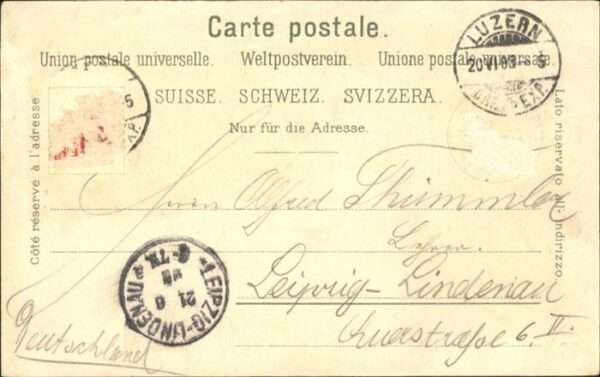 Carte postale.
Union postale universelle. Weltpostverein. Unione postale universale.
SUISSE. SCHWEIZ. SVIZZERA.
Nur für die Adresse.
Côté réservé à l'adresse
Lato riservato all' indirizzo
LUZERN
20 VI 03 - 5
EXP.
5
XP.
Herrn Alfred Thümmler
Lehrer.
Leipzig-Lindenau
Querstraße 6. II.
Deutschland
LEIPZIG-LINDENAU
21 6